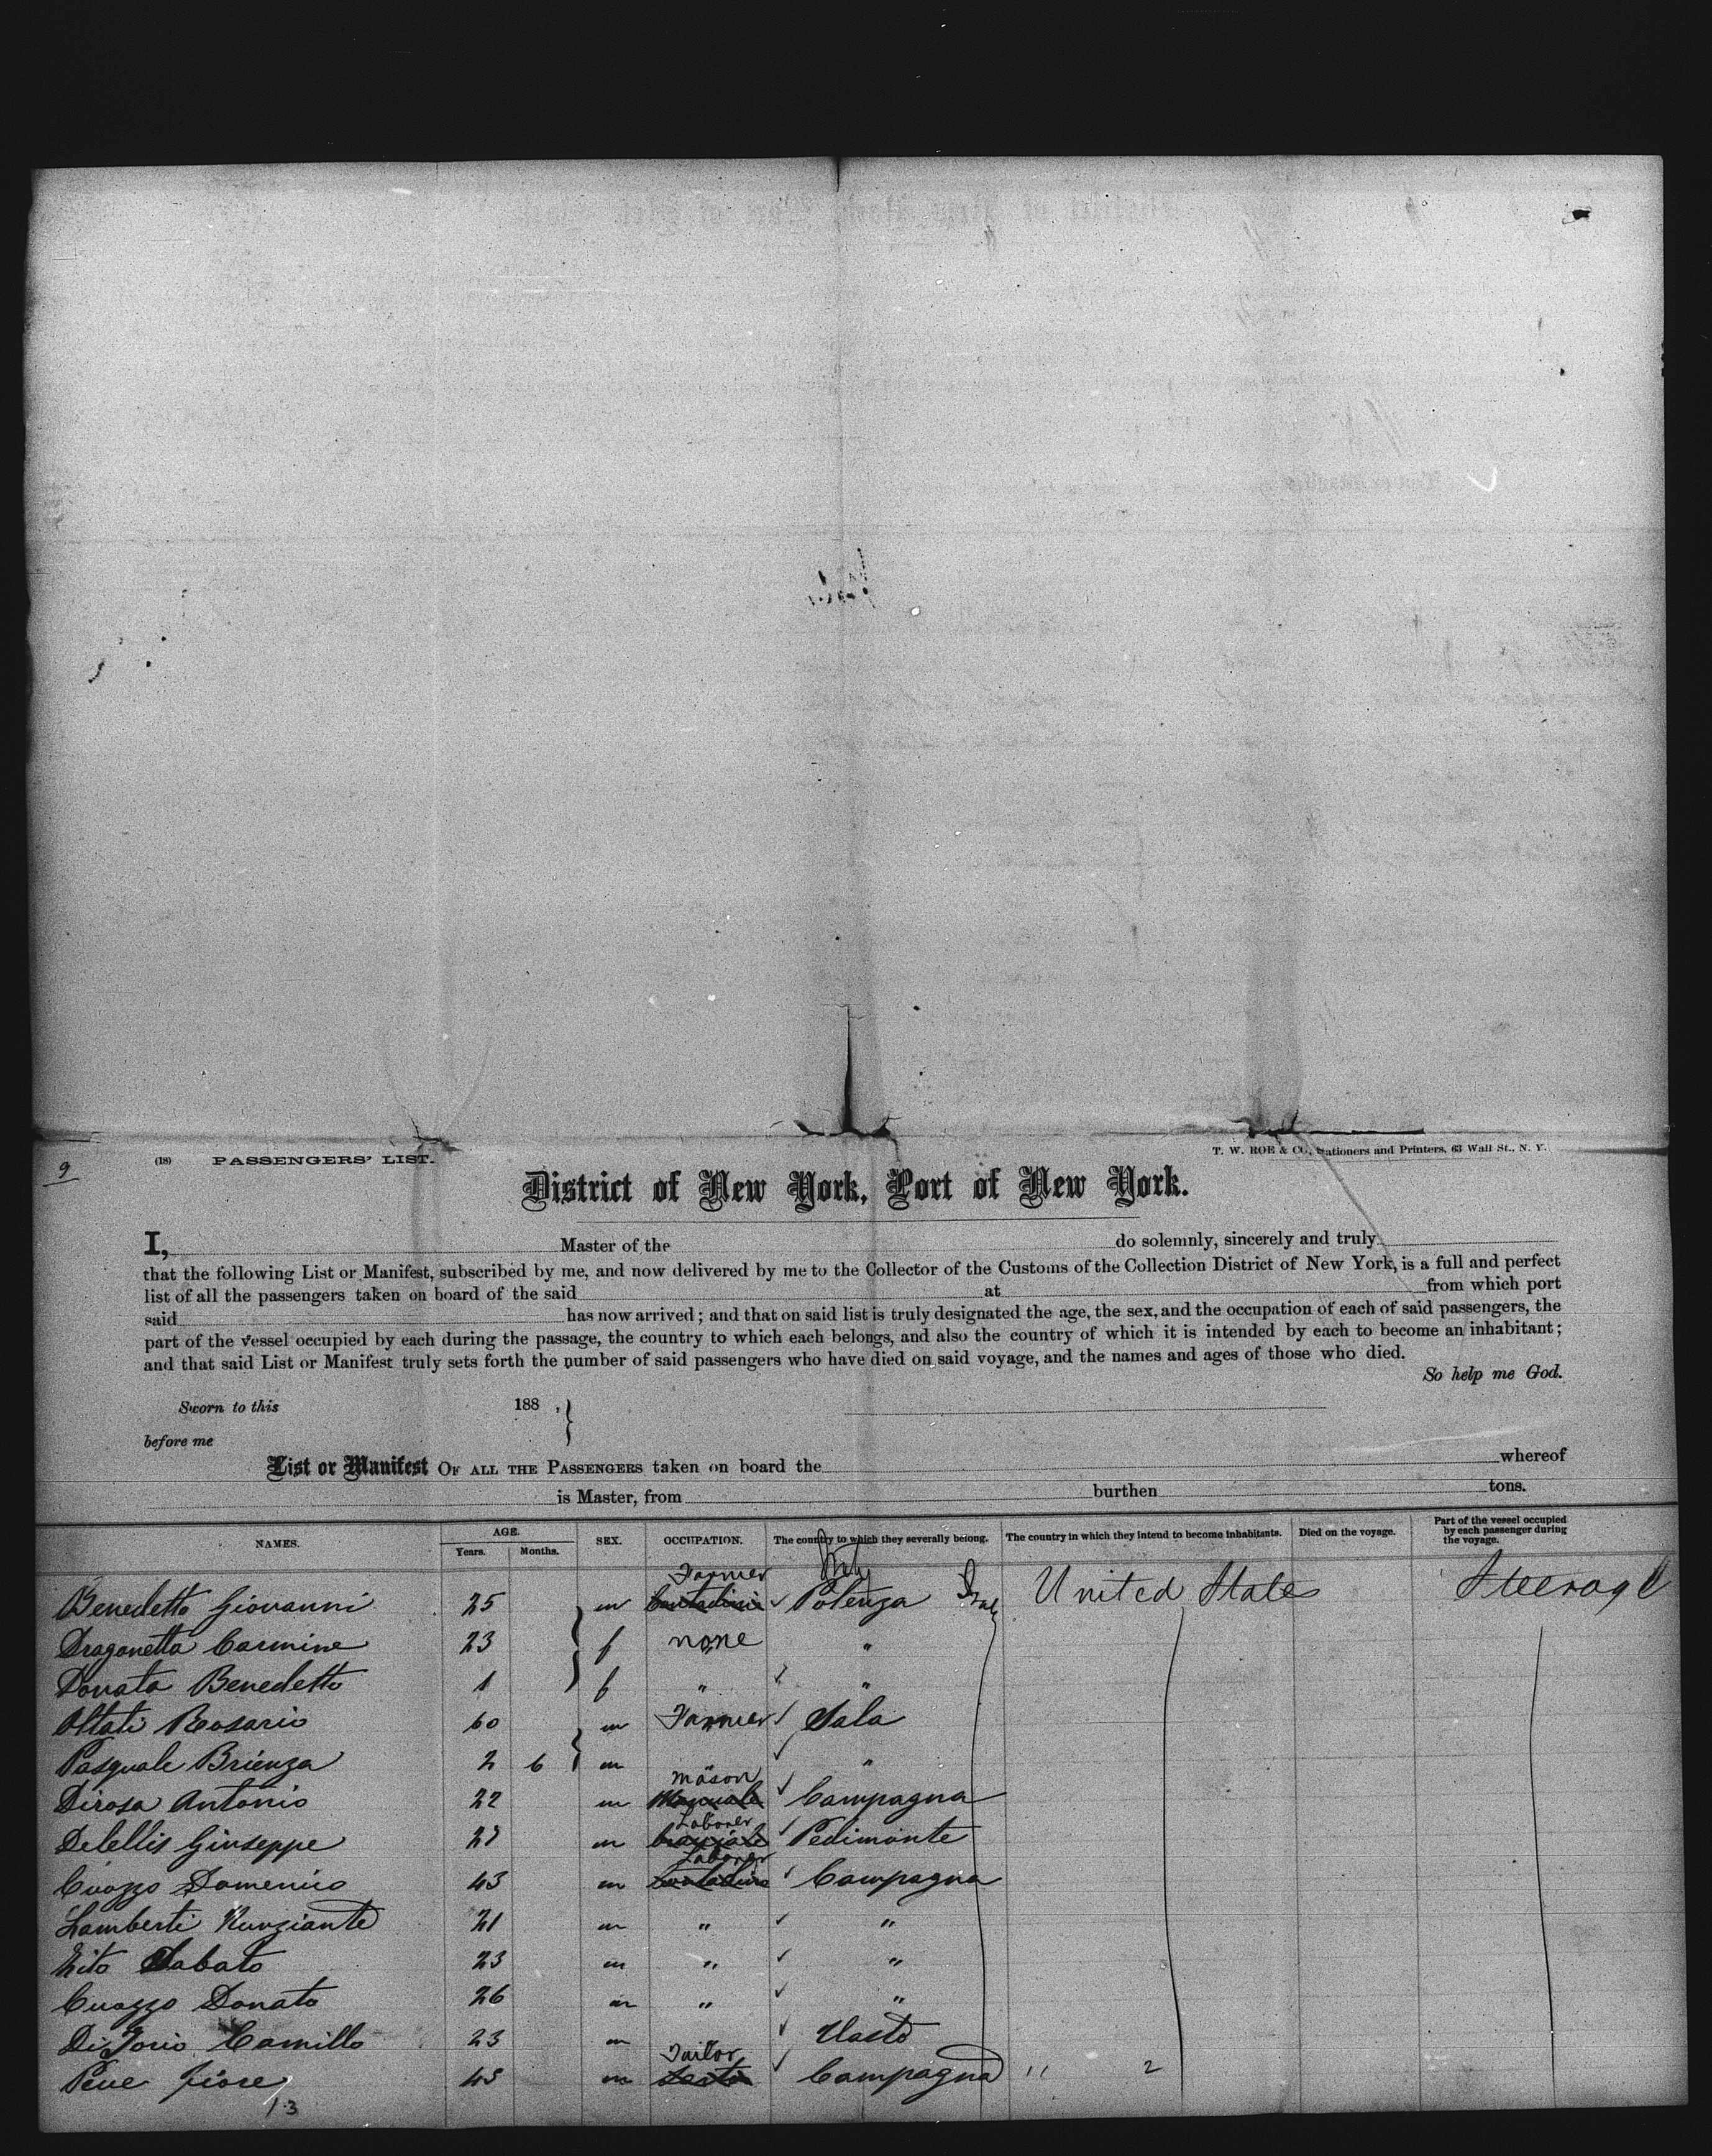 9
(18) PASSENGERS' LIST.
T. W. ROE & CO., Stationers and Printers, 63 Wall St., N. Y.
District of New York, Port of New York.
I, Master of the do solemnly, sincerely and truly
that the following List or Manifest, subscribed by me, and now delivered by me to the Collector of the Customs of the Collection District of New York, is a full and perfect
list of all the passengers taken on board of the said at from which port
said has now arrived; and that on said list is truly designated the age, the sex, and the occupation of each of said passengers, the
part of the vessel occupied by each during the passage, the country to which each belongs, and also the country of which it is intended by each to become an inhabitant;
and that said List or Manifest truly sets forth the number of said passengers who have died on said voyage, and the names and ages of those who died.
So help me God.
Sworn to this 188 ,
before me
List or Manifest OF ALL THE PASSENGERS taken on board the whereof
is Master, from burthen tons.
NAMES. AGE. Years. Months. SEX. OCCUPATION. The country to which they severally belong. The country in which they intend to become inhabitants. Died on the voyage. Part of the vessel occupied by each passenger during the voyage.
Farmer Italy
Benedetto Giovanni 25 m Contadino Potenza Italy United States Steerage
Dragonetta Carmine 23 f none "
Donata Benedetto 1 f " "
Rosario 60 m Farmer Sala
Pasquale Brienza 2 6 m "
Mason
Dirosa Antonio 22 m Manuale Campagna
Laborer
Delellis Giuseppe 27 m Pedimonte
Laborer
Cuozzo Domenico 43 m Contadino Campagna
Lamberti Nunziante 21 m " "
Vito Sabato 23 m " "
Cuozzo Donato 26 m " "
Di Jorio Camillo 23 m Vasto
Tailor
Fiore 45 m Sarto Campagna " 2
13